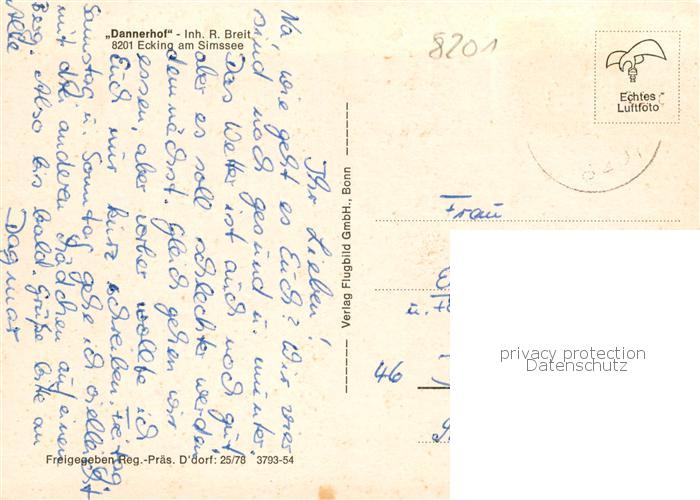 „Dannerhof" - Inh. R. Breit
8201 Ecking am Simssee
8201
Echtes
Luftfoto
Ihr Lieben!
Na, wie geht es Euch? Wir vier
sind noch gesund u. munter.
Das Wetter ist auch noch gut,
aber es soll schlechter werden
demnächst. Gleich gehen wir
essen, aber vorher wollte ich
Euch nur kurz schreiben. Freitag,
Samstag u. Sonntag gehe ich vielleicht
mit drei anderen Mädchen auf einen
Berg. Also bis bald. Grüße bitte an
Alle
Dagmar
Verlag Flugbild GmbH., Bonn
Frau
u.
46
privacy protection
Datenschutz
Freigegeben Reg.-Präs. D'dorf: 25/78 3793-54